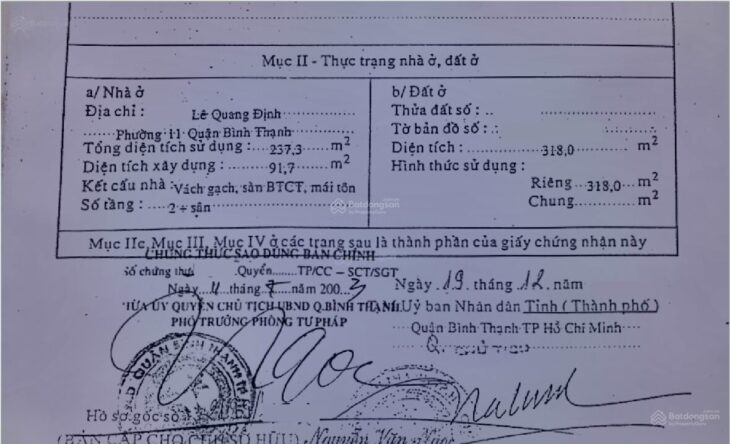 Mục II - Thực trạng nhà ở, đất ở
a/ Nhà ở
Địa chỉ : Lê Quang Định
Phường 11 Quận Bình Thạnh
Tổng diện tích sử dụng : 237,3 m²
Diện tích xây dựng : 91,7 m²
Kết cấu nhà : Vách gạch, sàn BTCT, mái tôn
Số tầng : 2 + sân
b/ Đất ở
Thửa đất số :
Tờ bản đồ số :
Diện tích : 318,0 m²
Hình thức sử dụng :
Riêng 318,0 m²
Chung m²
Mục IIc, Mục III, Mục IV ở các trang sau là thành phần của giấy chứng nhận này
CHỨNG THỰC SAO ĐÚNG BẢN CHÍNH
Số chứng thực Quyển TP/CC - SCT/SGT
Ngày 4 tháng 2003
THỪA ỦY QUYỀN CHỦ TỊCH UBND Q.BÌNH THẠNH
PHÓ TRƯỞNG PHÒNG TƯ PHÁP
Ngày 19 tháng 12 năm
Uỷ ban Nhân dân Tỉnh ( Thành phố )
Quận Bình Thạnh TP Hồ Chí Minh
Q. CHỦ TỊCH
Hồ sơ gốc số
(BẢN CẤP CHO CHỦ SỞ HỮU) Nguyễn Văn Ngọc
Batdongsan
by PropertyGuru
Batdongsan
by PropertyGuru